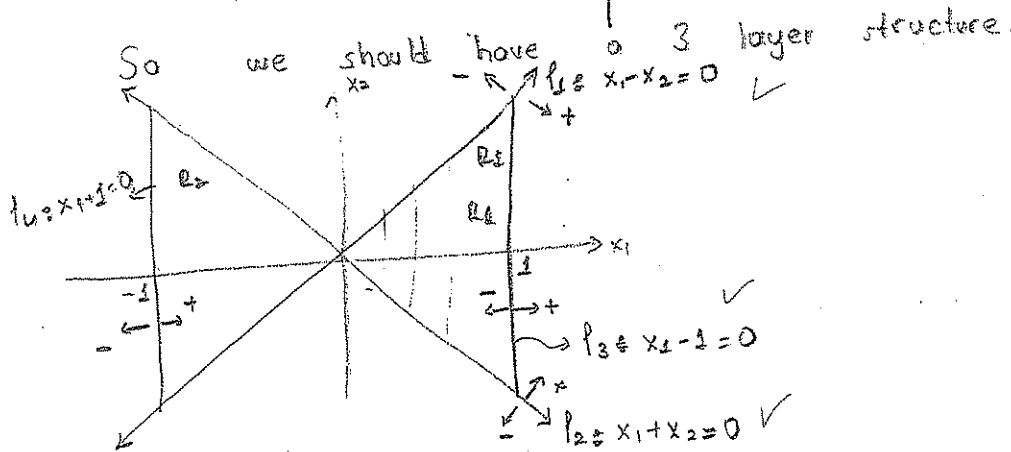 So we should have a 3 layer structure.
x2
- l1: x1-x2=0
+
R1
l4: x1+1=0 R2
R1
x1
-1 1
- + - +
l3: x1-1=0
+
- l2: x1+x2=0